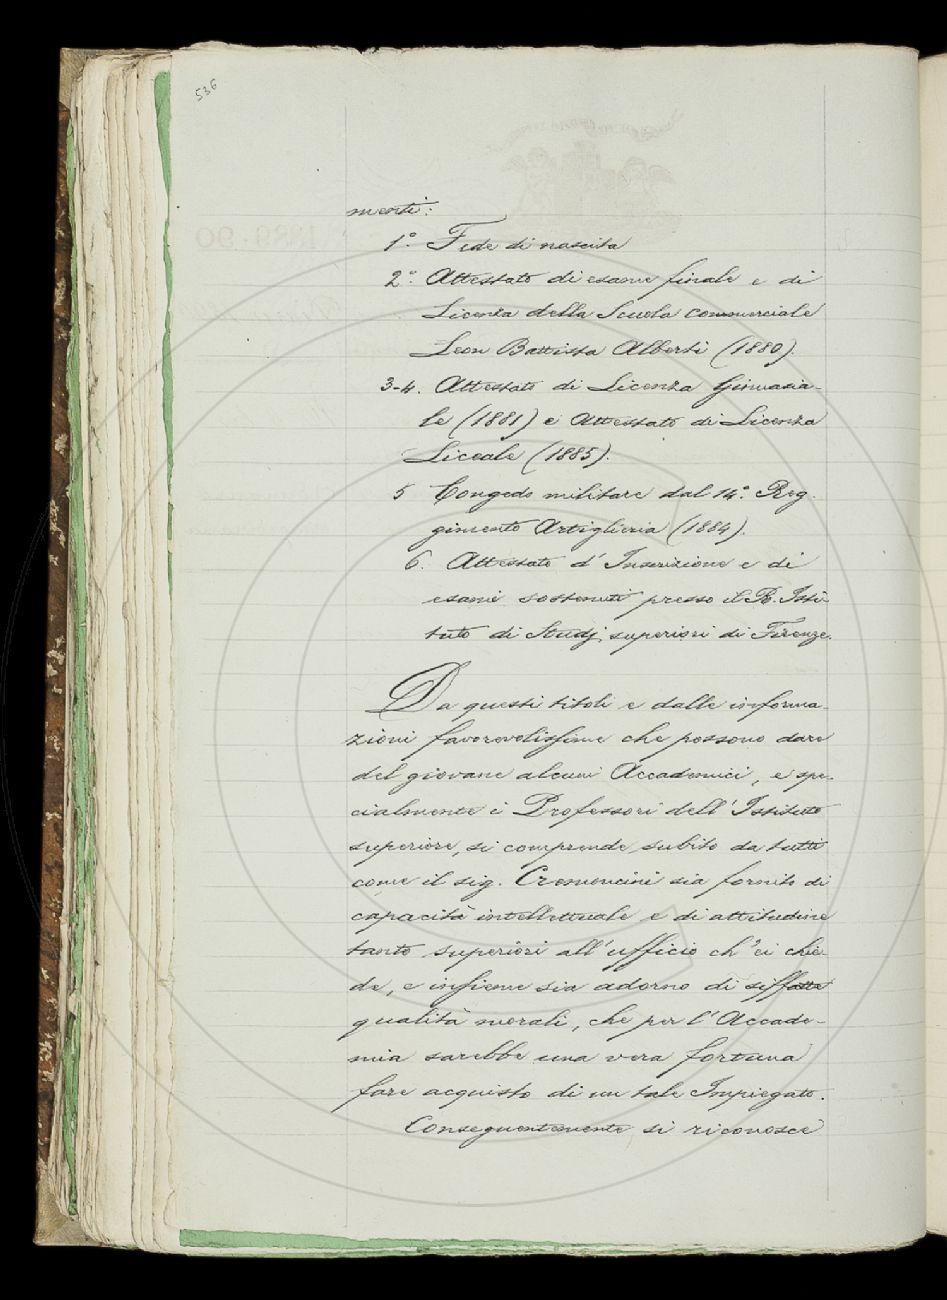 536
menti:
1º. Fede di nascita
2º. Attestato di esame finale e di
Licenza della Scuola commerciale
Leon Battista Alberti (1880).
3-4. Attestato di Licenza Ginnasia-
le (1881) e Attestato di Licenza
Liceale (1885).
5 Congedo militare dal 14º. Reg-
gimento Artiglieria (1884).
6. Attestato d'Inscrizione e di
esami sostenuti presso il R. Isti-
tuto di Studj superiori di Firenze.
Da questi titoli e dalle informa-
zioni favorevolissime che possono dare
del giovane alcuni Accademici, e spe-
cialmente i Professori dell'Istituto
superiore, si comprende subito da tutti
come il sig. Cremoncini sia fornito di
capacità intellettuale e di attitudine
tanto superiori all'ufficio ch'ei chie-
de, e insieme sia adorno di siffatte
qualità morali, che per l'Accade-
mia sarebbe una vera fortuna
fare acquisto di un tale Impiegato.
Conseguentemente si riconosce